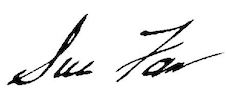 Sue Fan